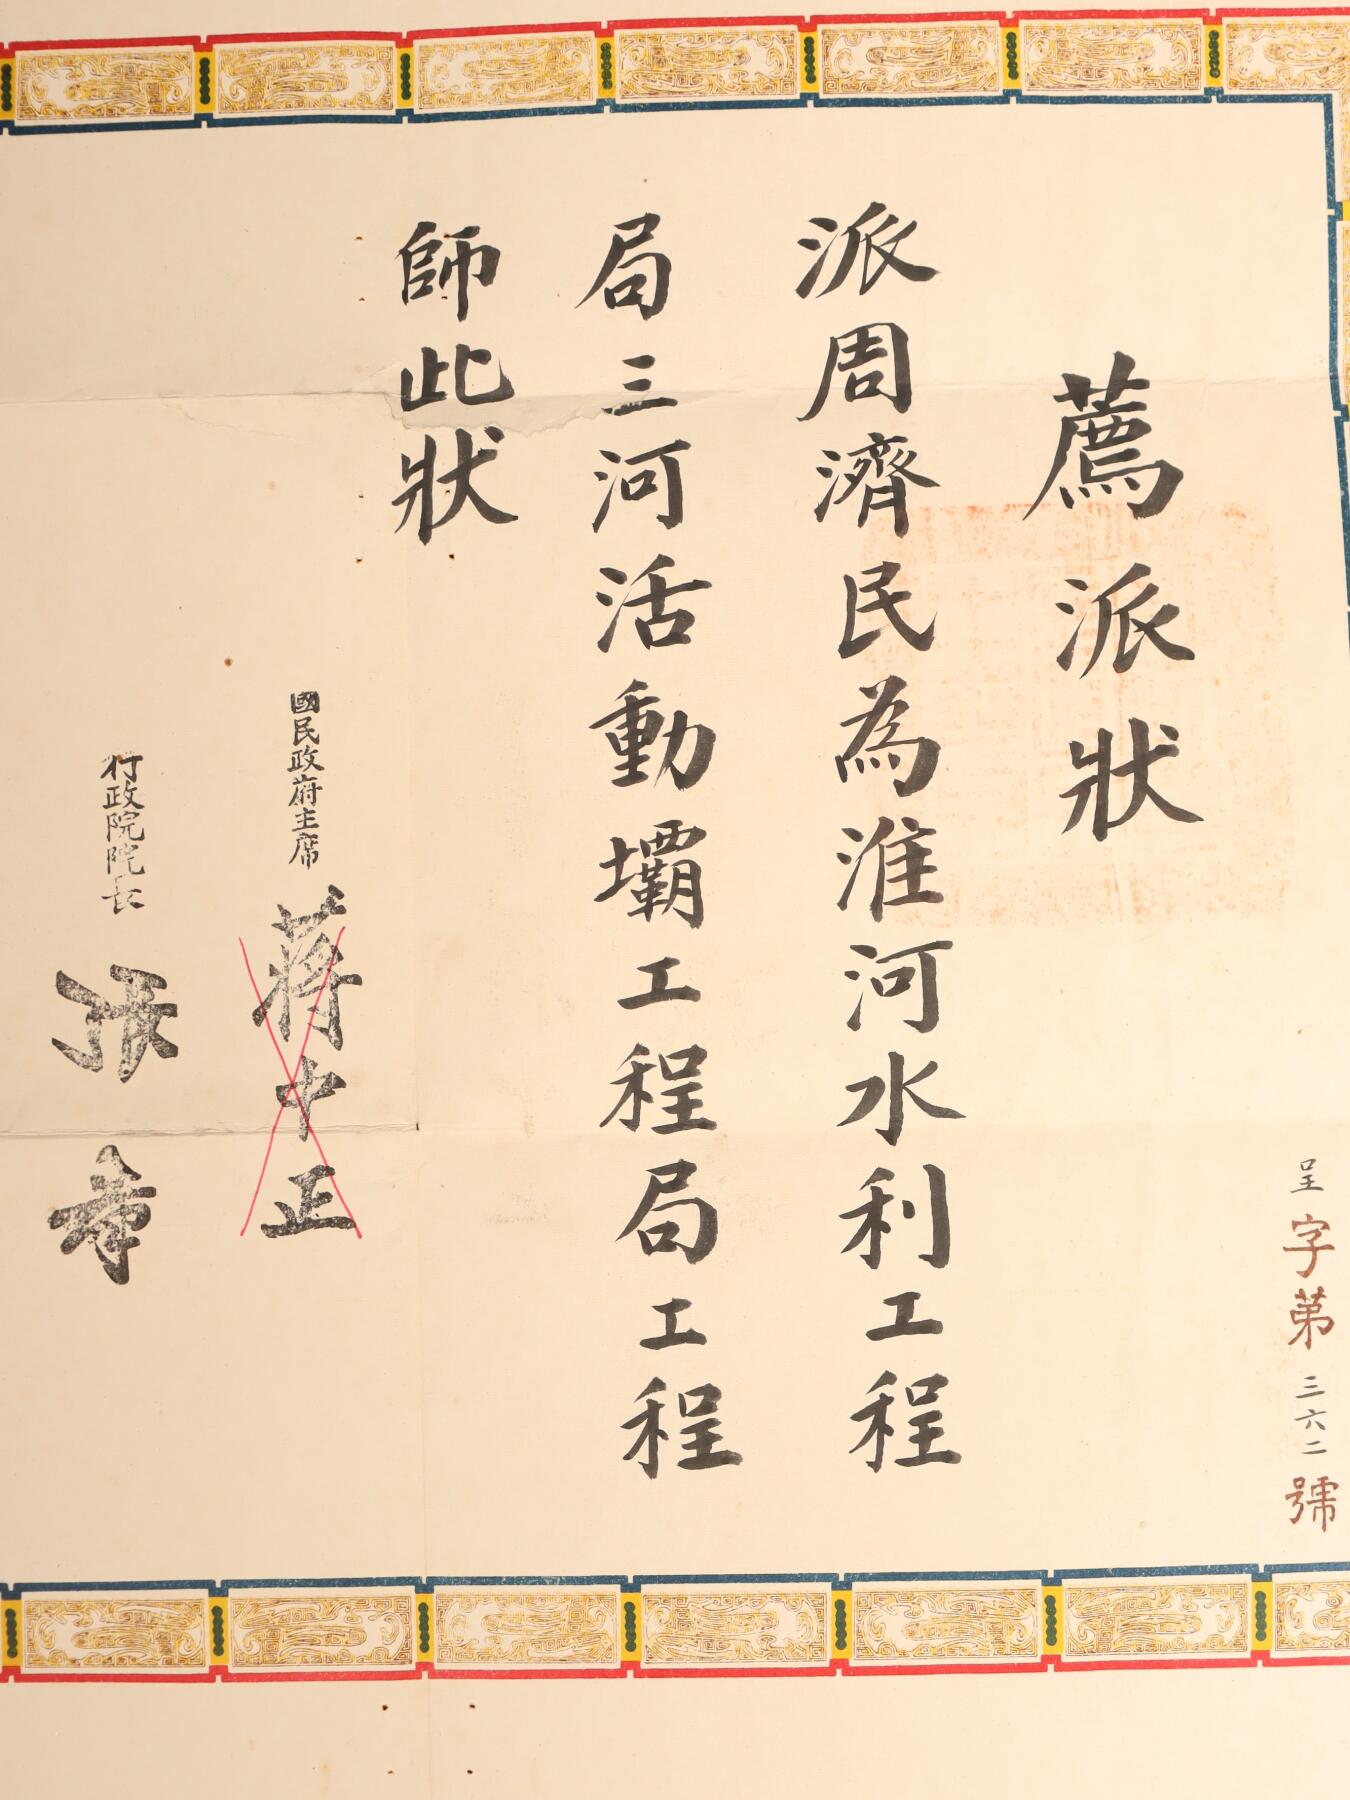 呈字第三六二號
薦派狀
派周濟民為淮河水利工程
局三河活動壩工程局工程
師此狀
國民政府主席 蔣中正
行政院院長 張羣